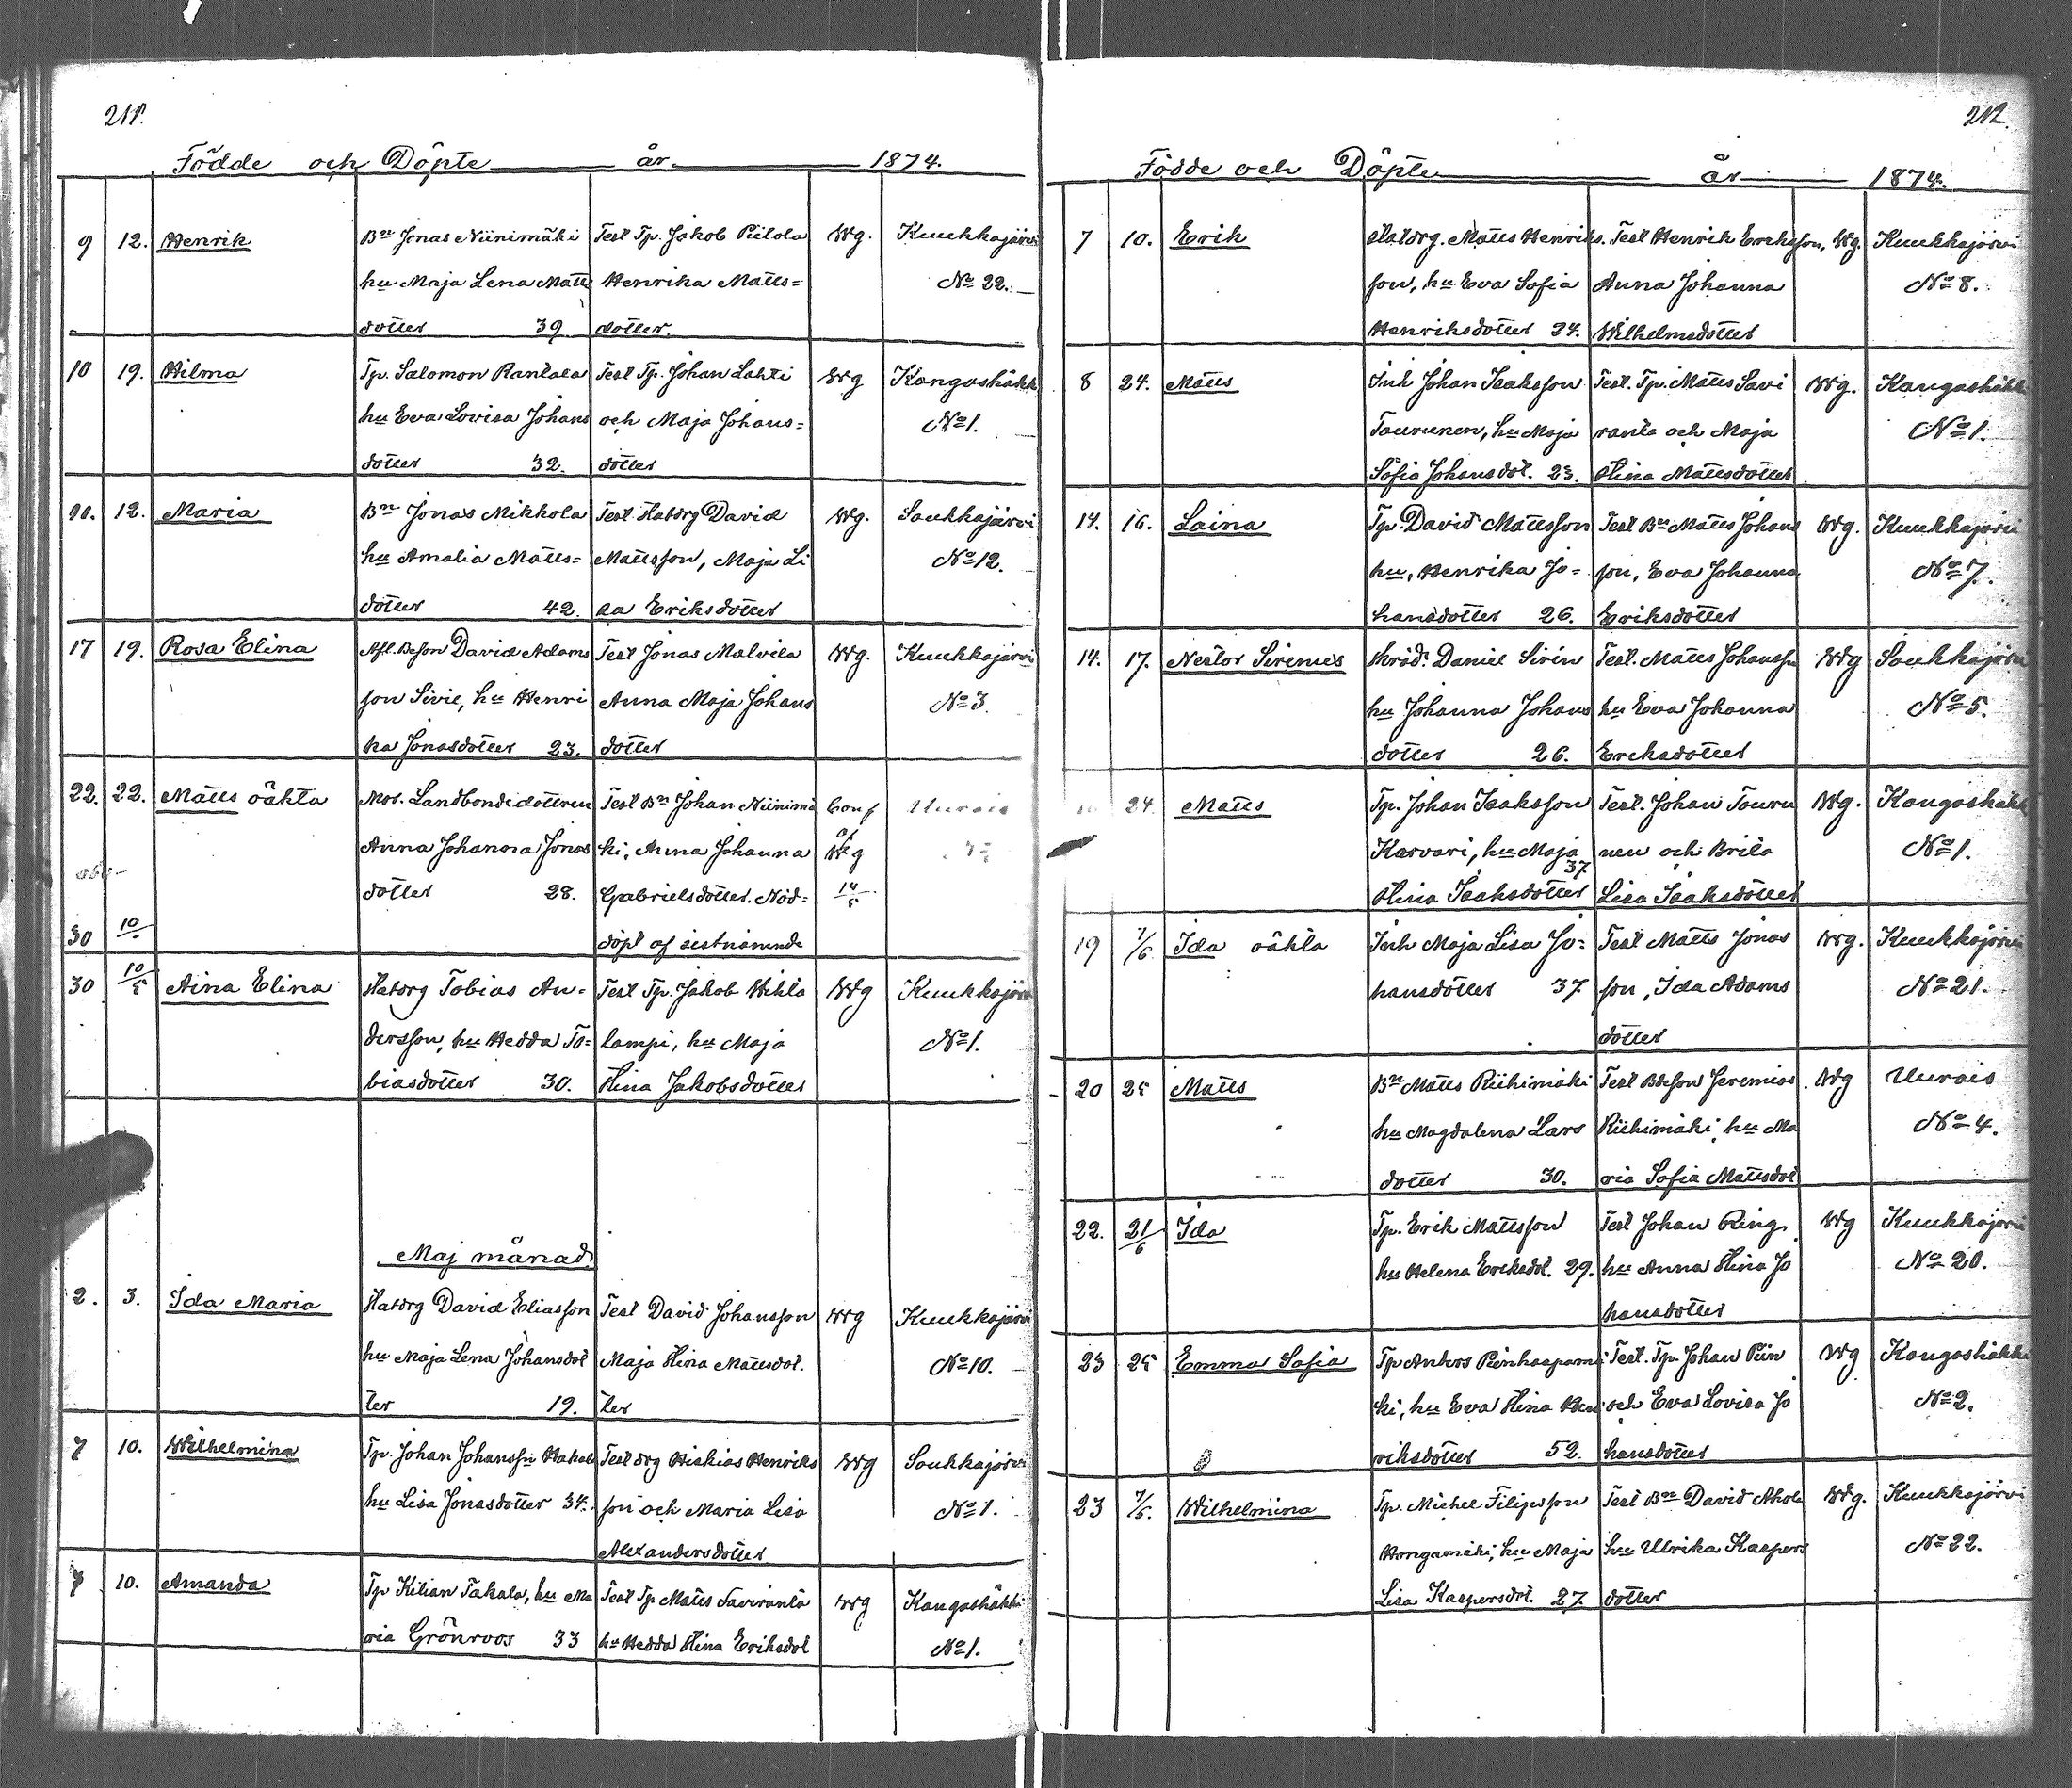 211.
Födde och Döpte år 1874.
9 12. Henrik Bn Jonas Niinimäki Test Tp. Jakob Piilola Wg. Kuukkajärvi
hu Maja Lena Matts Henrika Matts= No 22.
dotter 39 dotter.
10 19. Hilma Tp. Salomon Rantala Test Tp. Johan Lahti Wg Kangashäkki
hu Eva Lovisa Johans och Maja Johans= No 1.
dotter 32. dotter
11. 12. Maria Bn Jonas Mikkola Test Hatorg David Wg. Soukkajärvi
hu Amalia Matts= Mattsson, Maja Li No 12.
dotter 42. sa Eriksdotter
17 19. Rosa Elina Afl. Beson David Adams Test Jonas Malvila Wg. Kuukkajärvi
son Sivie, hu Henri Anna Maja Johans No 3.
ka Jonasdotter 23. dotter
22. 22. Matts oäkta Mor. Landbondedottren Test Bn Johan Niinimä Conf Uurais
Anna Johanna Jonas ki, Anna Johanna af Wg
dotter 28. Gabrielsdotter. Nöd=
30 10 döpt af sistnämnde
30 10/5 Aina Elina Hatorg Tobias An= Test Tp. Jakob Hihla Wg Kuukkajärvi
dersson, hu Hedda To= lampi, hu Maja No 1.
biasdotter 30. Stina Jakobsdotter
Maj månad
2. 3. Ida Maria Hatorg David Eliasson Test David Johansson Wg Kuukkajärvi
hu Maja Lena Johansdot Maja Stina Mattsdot. No 10.
ter 19. ter
7 10. Wilhelmina Tp. Johan Johansson Hakala Test drg Hiskias Henriks Wg Soukkajärvi
hu Lisa Jonasdotter 34. son och Maria Lisa No 1.
Alexandersdotter
7 10. Amanda Tp Kilian Takala, hu Ma Test Tp Matts Saviranta Wg Kangashäkki
ria Grönroos 33 hu Hedda Stina Eriksdot No 1.
212.
Födde och Döpte år 1874.
7 10. Erik Hatorg. Matts Henriks. Test Henrik Eriksson, Wg. Kuukkajärvi
son, hu Eva Sofia Anna Johanna No 8.
Henriksdotter 24. Wilhelmsdotter
8 24. Matts Inh Johan Isaksson Test. Tp. Matts Savi Wg. Kangashäkki
Tourunen, hu Maja ranta och Maja No 1.
Sofia Johansdot. 23. Stina Mattsdotter
14. 16. Laina Tp. David Mattsson Test Bn Matts Johans Wg. Kuukkajärvi
hu, Henrika Jo= son, Eva Johanna No 7.
hansdotter 26. Eriksdotter
14. 17. Nestor Sirenius Skräd. Daniel Sirén Test. Matts Johansson Wg Soukkajärvi
hu Johanna Johans hu Eva Johanna No 5.
dotter 26. Eriksdotter
24. Matts Tp. Johan Isaksson Test. Johan Touru Wg. Kangashäkki
Karvari, hu Maja nen och Brita No 1.
37.
Stina Isaksdotter Lisa Isaksdotter
19 7/6 Ida oäkta Inh Maja Lisa Jo= Test Matts Jonas Wg. Kuukkajärvi
hansdotter 37 son, Ida Adams No 21.
dotter
20 25 Matts Bn Matts Riihimäki Test Beson Jeremias Wg Uurais
hu Magdalena Lars Riihimäki, hu Ma No 4.
dotter 30. ria Sofia Mattsdot
22. 21/6 Ida Tp. Erik Mattsson Test Johan Ring, Wg Kuukkajärvi
hu Helena Eriksdot. 29. hu Anna Stina Jo No 20.
hansdotter
23 25 Emma Sofia Tp Anders Test. Tp. Johan Piin Wg Kangashäkki
ki, hu Eva Stina Hen och Eva Lovisa Jo No 2.
riksdotter 52. hansdotter
23 7/6. Wilhelmina Tp. Michel Filipsson Test Bn David Ahola Wg. Kuukkajärvi
Hongamäki, hu Maja hu Ulrika Kaspers No 22.
Lisa Kaspersdot. 27. dotter